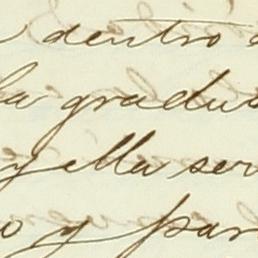 dentro
la gradua
y ella ser
o y par